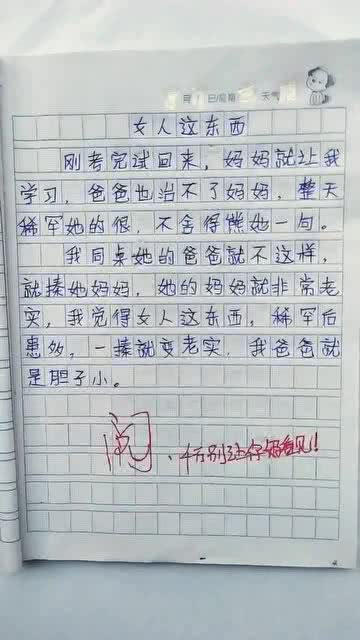 月 日/星期 天气
女人这东西
刚考完试回来，妈妈就让我
学习，爸爸也治不了妈妈，整天
稀罕她的很，不舍得熊她一句。
我同桌她的爸爸就不这样，
就揍她妈妈，她的妈妈就非常老
实，我觉得女人这东西，稀罕后
患多，一揍就变老实，我爸爸就
是胆子小。
阅、千万别让你妈看见!!